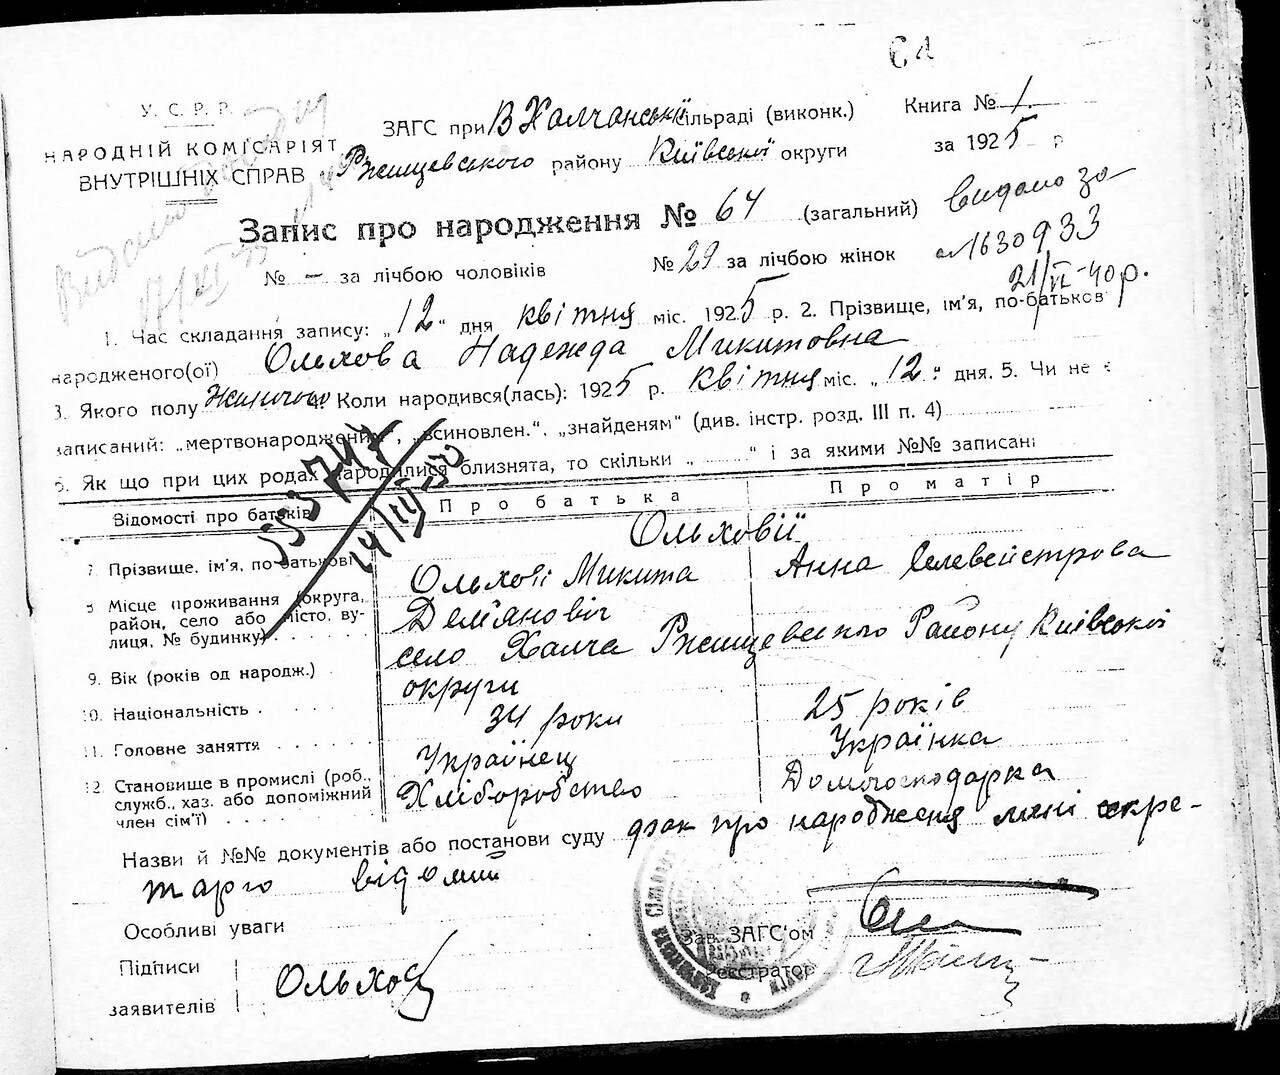 64
У. С. Р. Р.
НАРОДНІЙ КОМІСАРІЯТ
ВНУТРІШНІХ СПРАВ
ЗАГС при В Халчанській сільраді (виконк.)
Ржищевського району Київської округи
Книга № 1.
за 1925 р
Запис про народження № 64 (загальний)
видано за
№ – за лічбою чоловіків № 29 за лічбою жінок
1630933
21/VI-40р.
1. Час складання запису: „12“ дня квітня міс. 1925 р. 2. Прізвище, ім'я, по-батьков
народженого(ої) Ольхова Надежда Микитовна
3. Якого полу Жіночого 4. Коли народився(лась): 1925 р. квітня міс. „12“ дня. 5. Чи не є
записаний: „мертвонародженим“, „всиновлен.“, „знайденям“ (див. інстр. розд. III п. 4)
6. Як що при цих родах народилися близнята, то скільки „ “ і за якими №№ записані
Відомості про батьків Про батька Про матір
Ольховії
7. Прізвище, ім'я, по-батькові Ольхові Микита Демянович Анна Селевейстрова
8 Місце проживання (округа, район, село або місто, вулиця, № будинку) село Халча Ржищевського Району Київської округи
9. Вік (років од народж.) 34 роки 25 років
10. Національність Украінец Украінка
11. Головне заняття Хліборобство Домогосподарка
12 Становище в промислі (роб., служб., хаз. або допоміжний член сім'ї)
Назви й №№ документів або постанови суду про народженя мині секре-
тарю відомий
Особливі уваги
Зав. ЗАГС'ом
Підписи
заявителів
Ольхов
Реєстратор